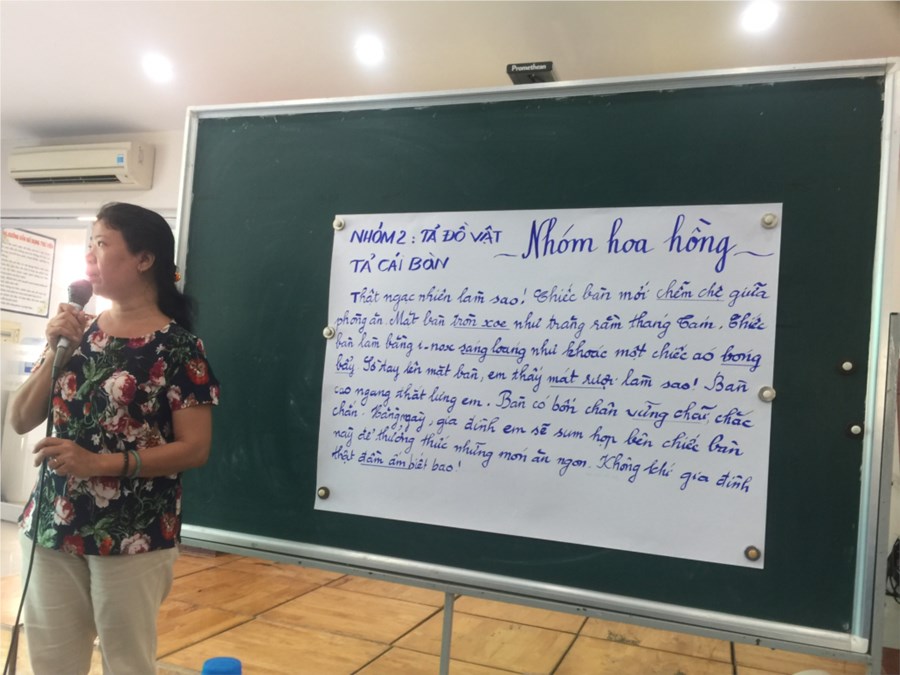 Promethean
NHÓM 2 : TẢ ĐỒ VẬT
~ Nhóm hoa hồng ~
TẢ CÁI BÀN
Thật ngạc nhiên làm sao! Chiếc bàn mới chễm chệ giữa
phòng ăn. Mặt bàn tròn xoe như trăng rằm tháng tám. Chiếc
bàn làm bằng i-nox sáng loáng như khoác một chiếc áo bóng
bẩy. Sờ tay lên mặt bàn, em thấy mát rượi làm sao! Bàn
cao ngang thắt lưng em. Bàn có bốn chân vững chãi, chắc
chắn. Hằng ngày, gia đình em sẽ sum họp bên chiếc bàn
này để thưởng thức những món ăn ngon. Không khí gia đình
thật đầm ấm biết bao!